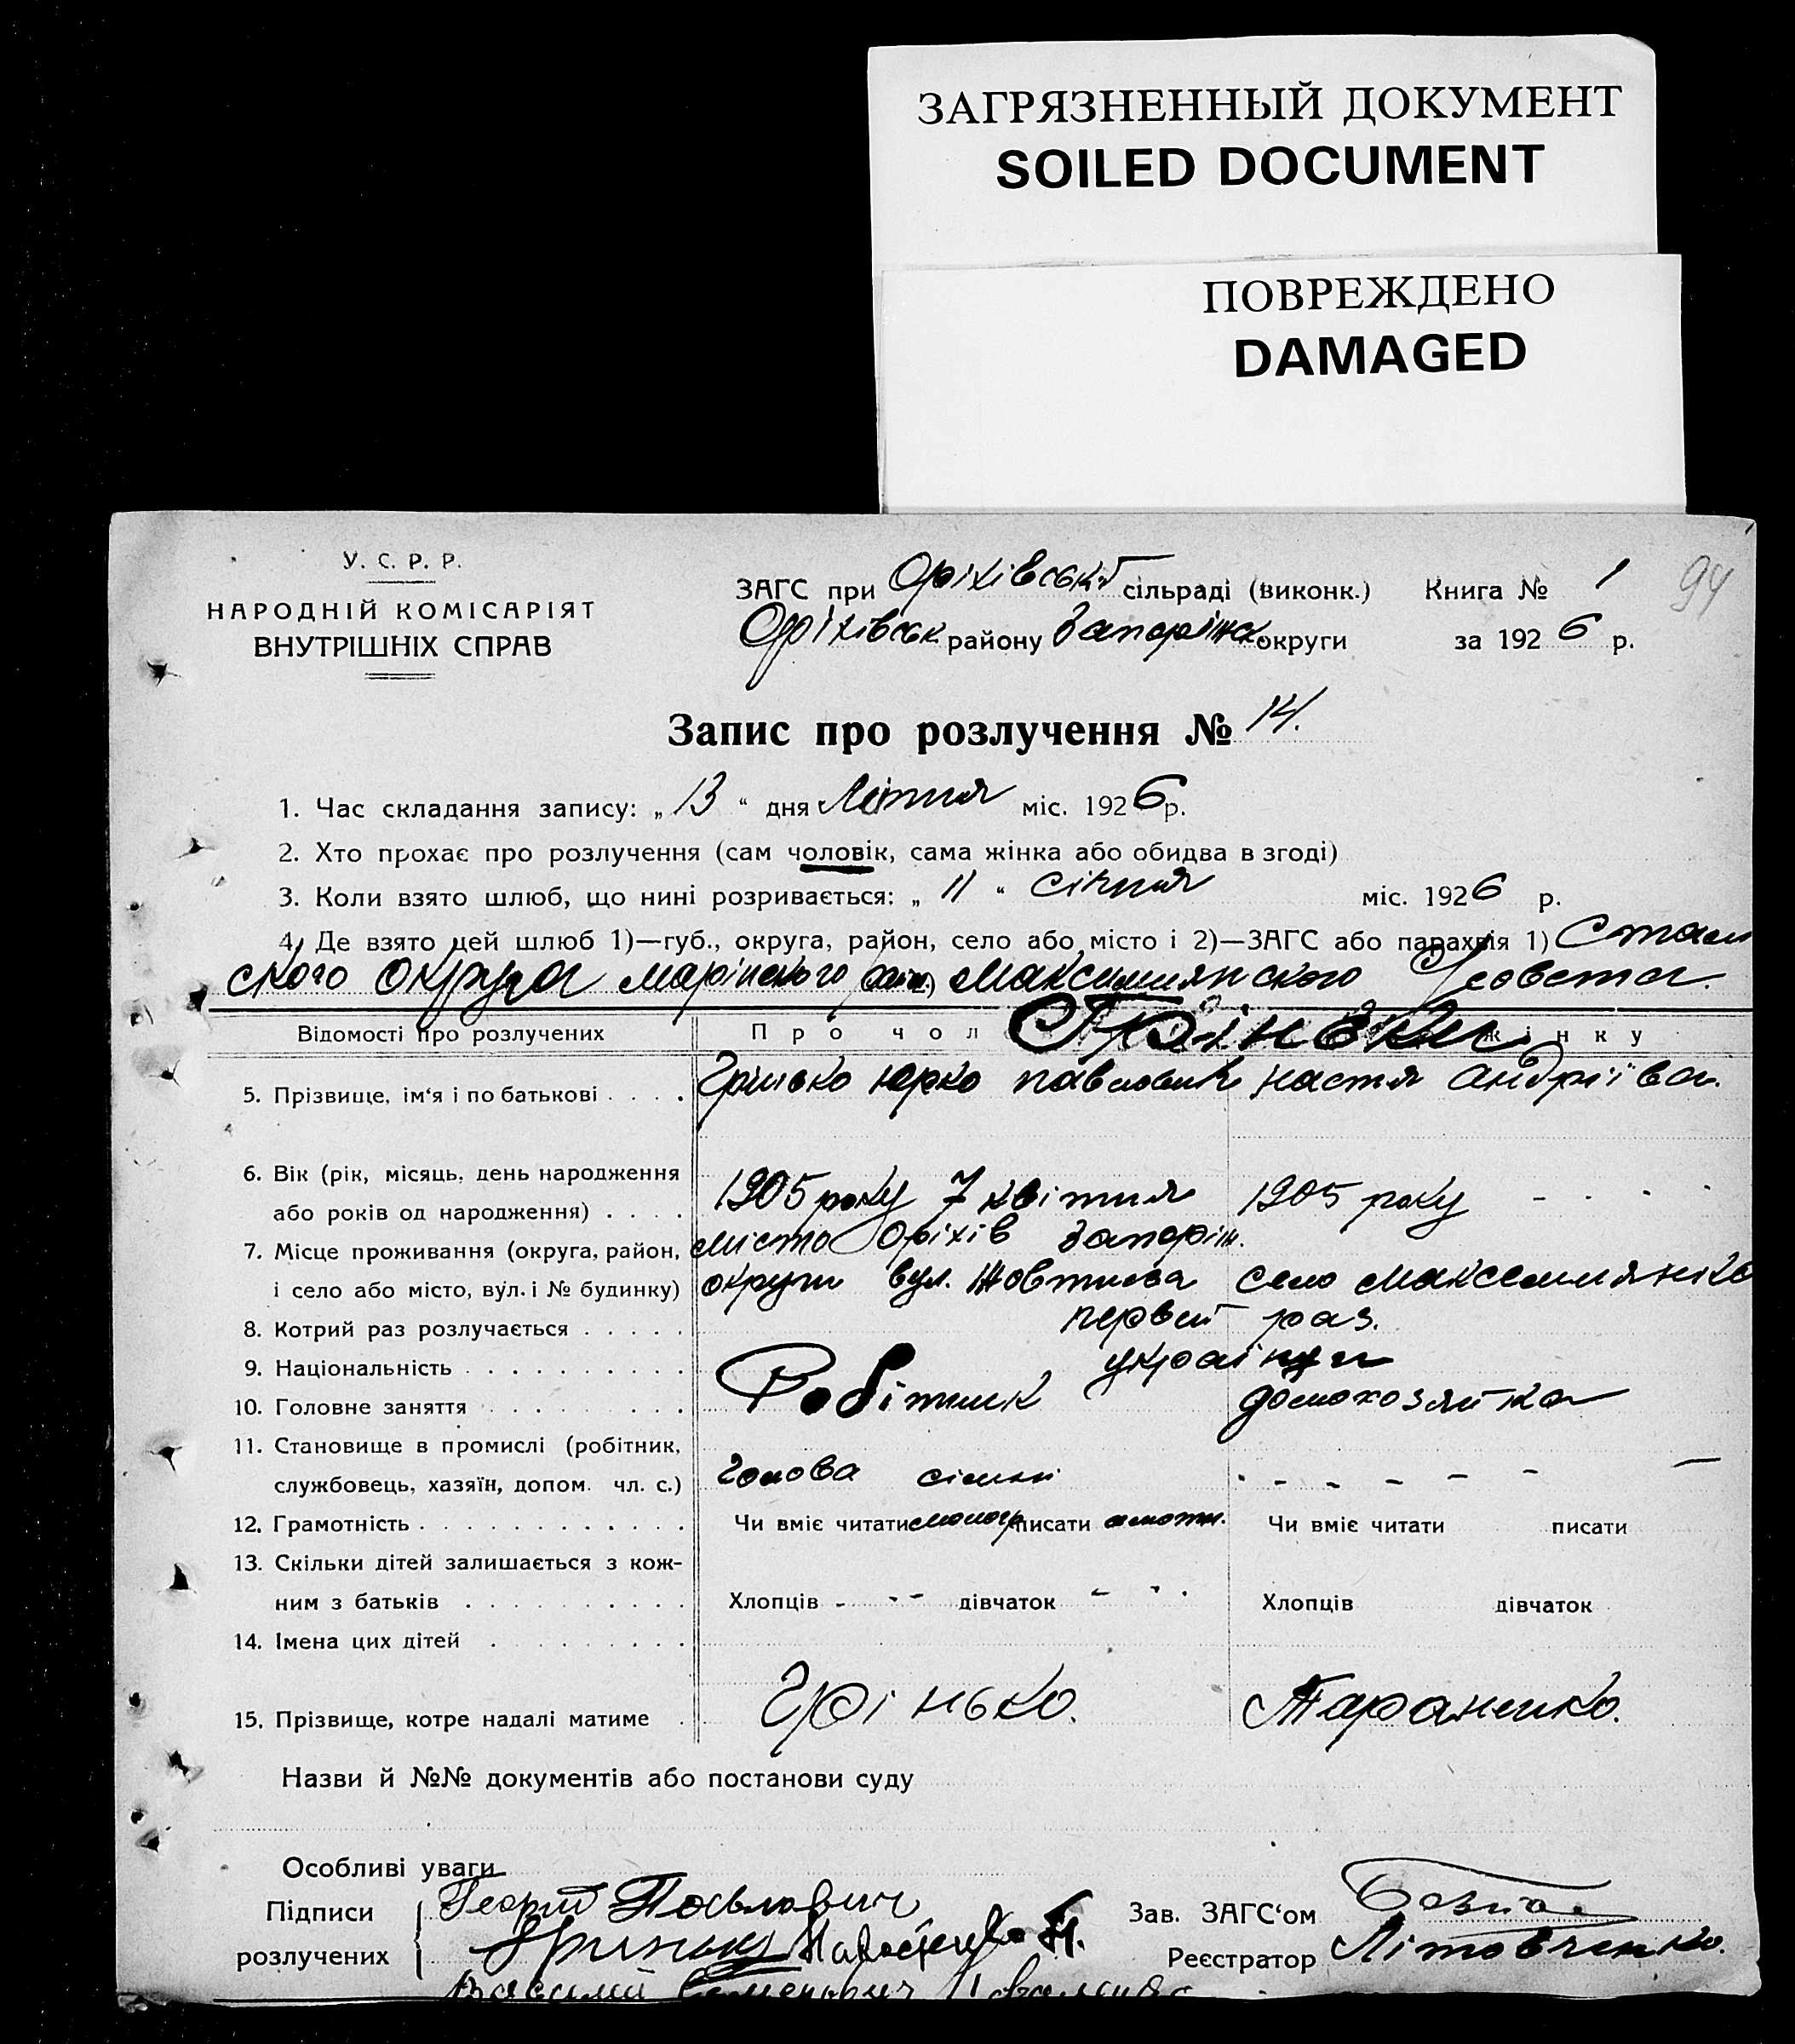 ЗАГРЯЗНЕННЫЙ ДОКУМЕНТ
SOILED DOCUMENT
ПОВРЕЖДЕНО
DAMAGED
У. С. Р. Р.
НАРОДНІЙ КОМІСАРІЯТ
ВНУТРІШНІХ СПРАВ
ЗАГС при Оріхівській сільраді (виконк.) Книга № 1 94
Оріхівськ району Запоріжск. округи за 1926 р.
Запис про розлучення № 14.
1. Час складання запису: „13“ дня Літня міс. 1926 р.
2. Хто прохає про розлучення (сам чоловік, сама жінка або обидва в згоді)
3. Коли взято шлюб, що нині розривається: „11“ січня міс. 1926 р.
4. Де взято цей шлюб 1)—губ., округа, район, село або місто і 2)—ЗАГС або парахвія 1) Стали
ского округа марінского район) максимилянского совета.
Відомості про розлучених Про чол Грінвки жінку
5. Прізвище, ім‘я і по батькові Грінько Юрко павлович настя андріїва.
6. Вік (рік, місяць, день народження
або років од народження) 1905 року 7 квітня 1905 року - - - -
7. Місце проживання (округа, район, місто Оріхів Запоріж.
і село або місто, вул. і № будинку) округи вул. Жовтнева село максемилянівка
8. Котрий раз розлучається первий раз.
9. Національність українци
10. Головне заняття Робітник домохозяйка
11. Становище в промислі (робітник,
службовець, хазяїн, допом. чл. с.) Голова сімні - - - - - -
12. Грамотність Чи вміє читати писати Чи вміє читати писати
13. Скільки дітей залишається з кож-
ним з батьків Хлопців - - - дівчаток - - - Хлопців дівчаток
14. Імена цих дітей
15. Прізвище, котре надалі матиме Грінько. Тараненко.
Назви й №№ документів або постанови суду
Особливі уваги
Підписи Георгій Павлович Зав. ЗАГС‘ом
розлучених Гринько Реєстратор Літовченко.
Василий Семенович